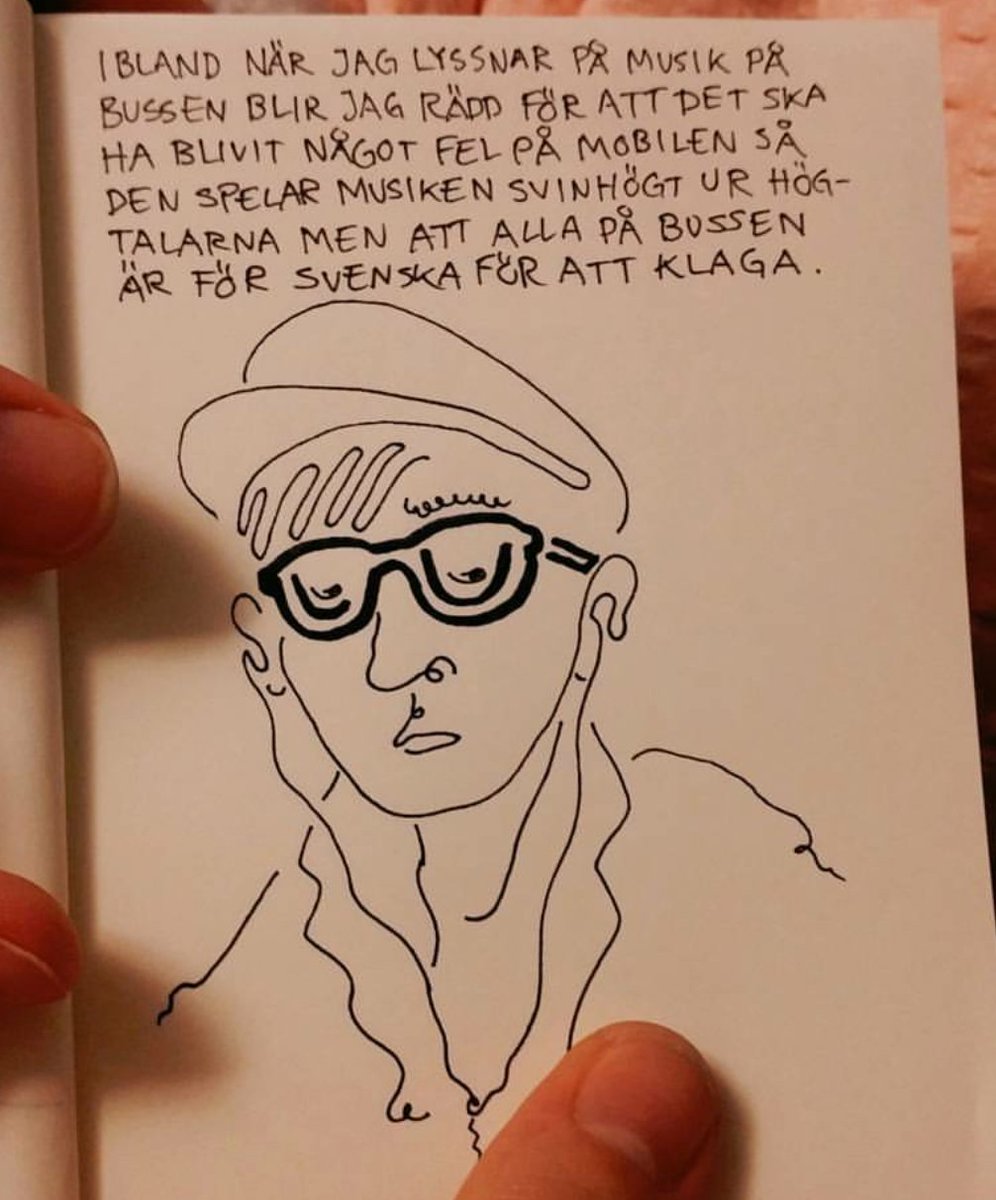 IBLAND NÄR JAG LYSSNAR PÅ MUSIK PÅ
BUSSEN BLIR JAG RÄDD FÖR ATT DET SKA
HA BLIVIT NÅGOT FEL PÅ MOBILEN SÅ
DEN SPELAR MUSIKEN SVINHÖGT UR HÖG-
TALARNA MEN ATT ALLA PÅ BUSSEN
ÄR FÖR SVENSKA FÖR ATT KLAGA.